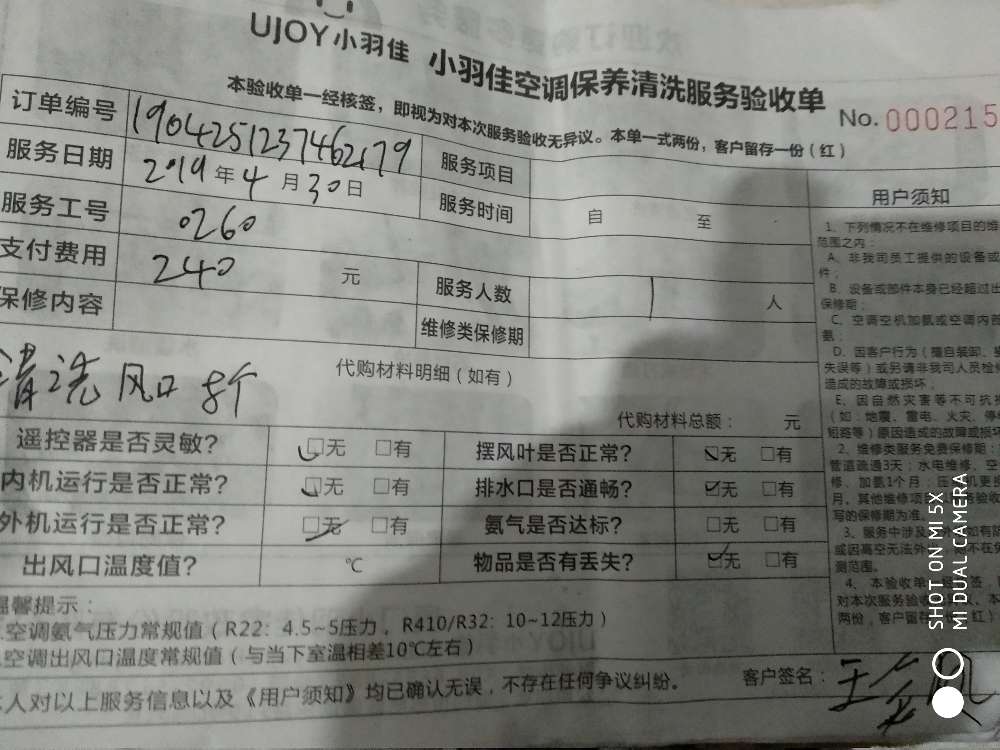 UJOY小羽佳 小羽佳空调保养清洗服务验收单
No.000215
本验收单一经核签，即视为对本次服务验收无异议。本单一式两份，客户留存一份（红）
订单编号 1904251237462179 服务项目
服务日期 2019年4月30日 服务时间 自 至
服务工号 0260
支付费用 240 元 服务人数 1 人
保修内容 维修类保修期
代购材料明细（如有）
清洗风口8个
代购材料总额： 元
遥控器是否灵敏？ □无 □有 摆风叶是否正常？ □无 □有
内机运行是否正常？ □无 □有 排水口是否通畅？ □无 □有
外机运行是否正常？ □无 □有 氨气是否达标？ □无 □有
出风口温度值？ ℃ 物品是否有丢失？ □无 □有
温馨提示：
空调氨气压力常规值（R22：4.5~5压力，R410/R32：10~12压力）
空调出风口温度常规值（与当下室温相差10℃左右）
人对以上服务信息以及《用户须知》均已确认无误，不存在任何争议纠纷。
客户签名：
用户须知
1、下列情况不在维修项目的维
范围之内：
A、非我司员工提供的设备或
件；
B、设备或部件本身已经超过出
保修期；
C、空调空机加氨或空调内部
氨；
D、因客户行为（擅自装卸、
失误等）或另请非我司人员检修
造成的故障或损坏；
E、因自然灾害等不可抗
（如：地震、雷电、火灾、停
短路等）原因造成的故障或损坏
2、维修类服务免费保修期：
管道疏通3天；水电维修、空
修、加氨1个月；压 机更换
月。其他维修项 务验收
写的保修期为准。
3、服务中涉及 外 如有
或因高空无法外 不在
测范围。
4、本验收单 经核签，
对本次服务验收 认、本
两份，客户留存 红）
SHOT ON MI 5X
MI DUAL CAMERA